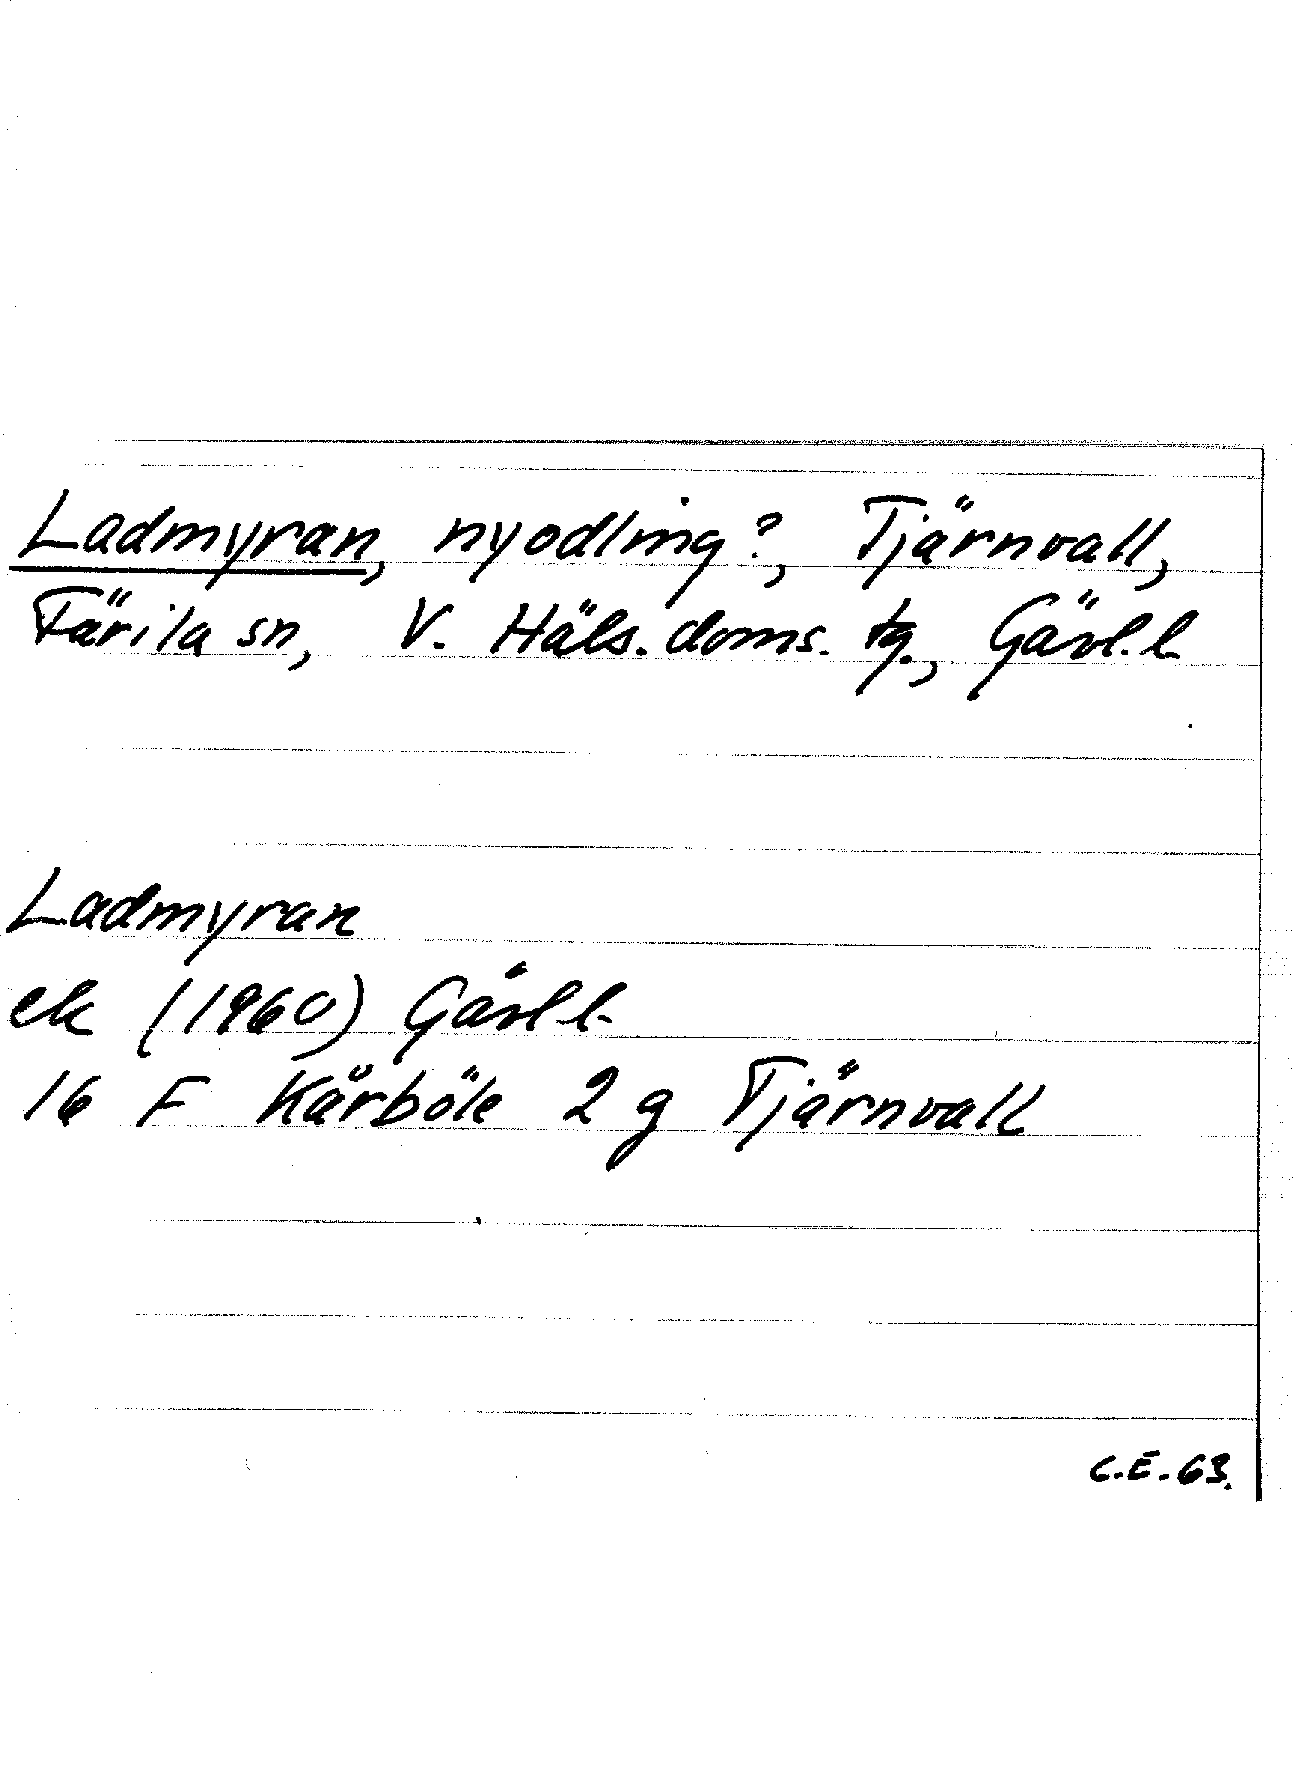 Ladmyran, nyodling?, Tjärnvall,
Färila sn, V. Häls. doms. tg., Gävl. l.
Ladmyran
ek (1960) Gävl l.
16 F Kårböle 2 g Tjärnvall
C.E. 63.